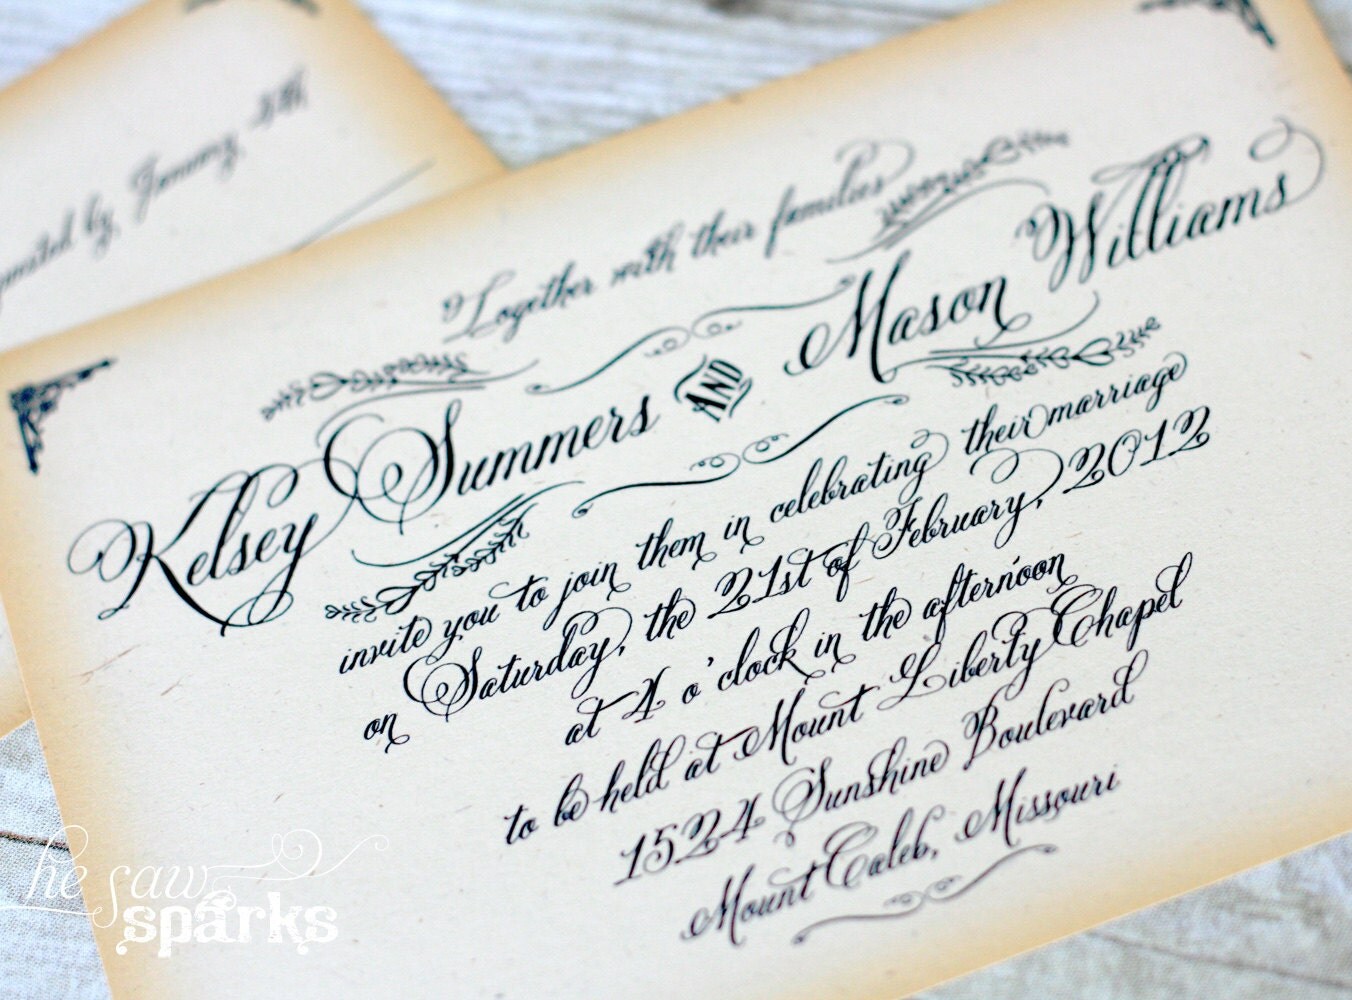 by January 4th
Together with their families
Kelsey Summers AND Mason Williams
invite you to join them in celebrating their marriage
on Saturday, the 21st of February, 2012
at 4 o'clock in the afternoon
to be held at Mount Liberty Chapel
1524 Sunshine Boulevard
Mount Caleb, Missouri
he saw
sparks